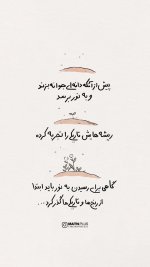 پیش از آنکه دانه‌ای جوانه بزند
و به نور برسد
ریشه‌هایش تاریکی را تجربه کرده
گاهی برای رسیدن به نور باید ابتدا
از رنج‌ها و تاریکی‌ها گذر کرد...
MAMYPLUS